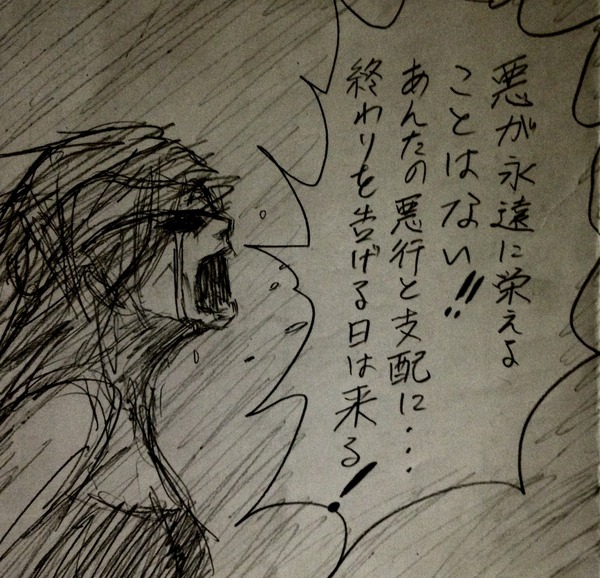 悪が永遠に栄えよ
ことはない!!
あんたの悪行と支配に・・・
終わりを告げる日は来る!